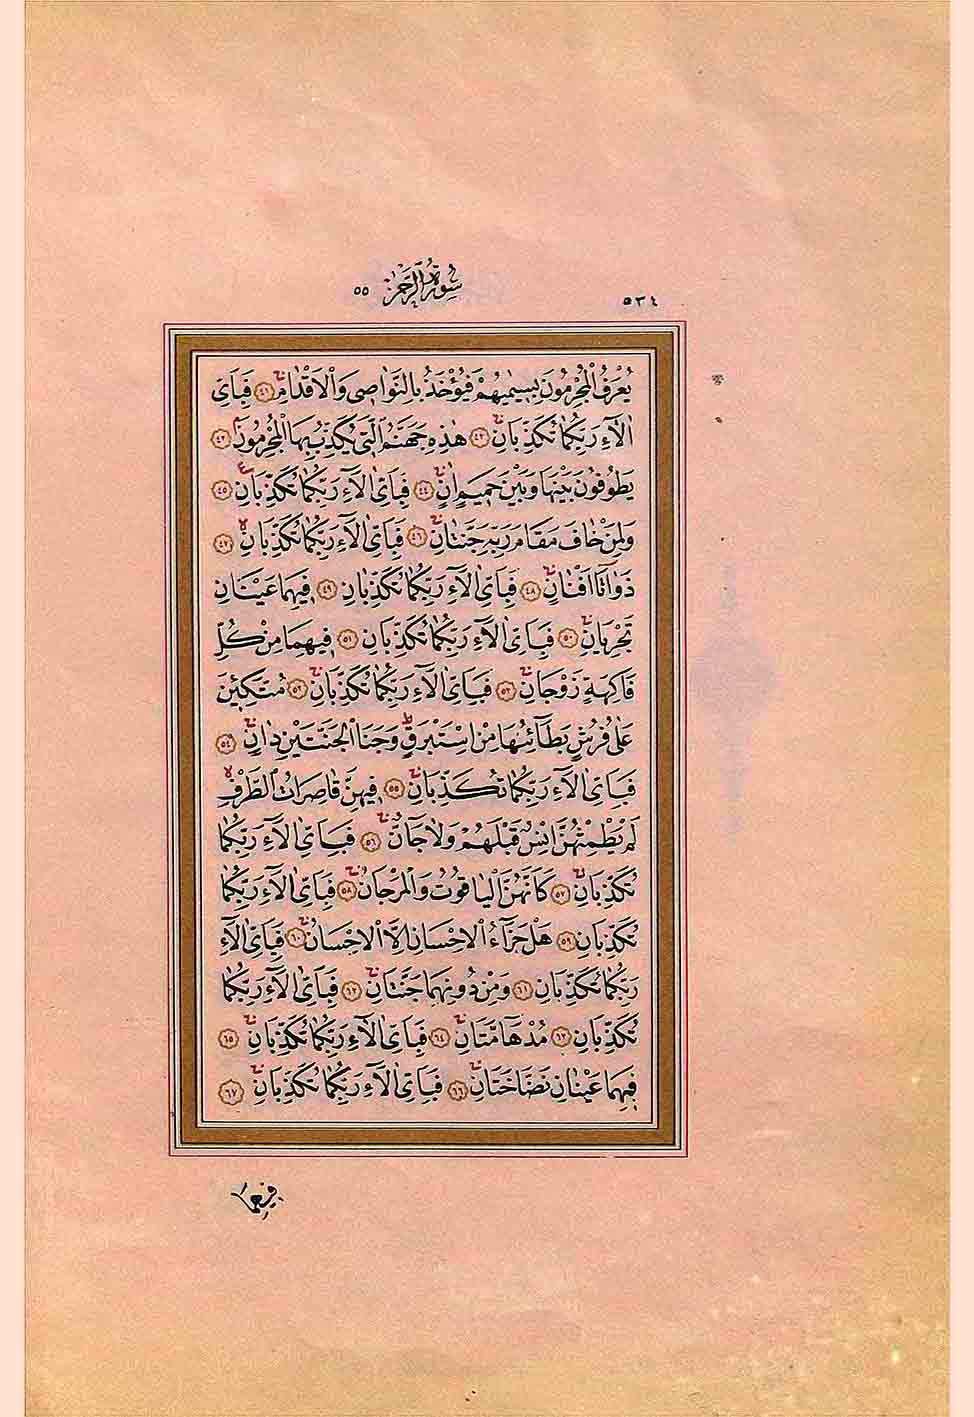 ٥٣٤
سورة الرحمن ٥٥
يُعْرَفُ الْمُجْرِمُونَ بِسِيمٰيهُمْ فَيُؤْخَذُ بِالنَّوَاصِى وَالْاَقْدَامِۚ ﴿٤١﴾ فَبِاَىِّ
اٰلَٓاءِ رَبِّكُمَا تُكَذِّبَانِۚ ﴿٤٢﴾ هٰذِهِ جَهَنَّمُ الَّتِى يُكَذِّبُ بِهَا الْمُجْرِمُونَۘ ﴿٤٣﴾
يَطُوفُونَ بَيْنَهَا وَبَيْنَ حَمِيمٍ اٰنٍۚ ﴿٤٤﴾ فَبِاَىِّ اٰلَٓاءِ رَبِّكُمَا تُكَذِّبَانِ ﴿٤٥﴾
وَلِمَنْ خَافَ مَقَامَ رَبِّهِ جَنَّتَانِۚ ﴿٤٦﴾ فَبِاَىِّ اٰلَٓاءِ رَبِّكُمَا تُكَذِّبَانِۙ ﴿٤٧﴾
ذَوَاتَٓا اَفْنَانٍۚ ﴿٤٨﴾ فَبِاَىِّ اٰلَٓاءِ رَبِّكُمَا تُكَذِّبَانِ ﴿٤٩﴾ فِيهِمَا عَيْنَانِ
تَجْرِيَانِۚ ﴿٥٠﴾ فَبِاَىِّ اٰلَٓاءِ رَبِّكُمَا تُكَذِّبَانِ ﴿٥١﴾ فِيهِمَا مِنْ كُلِّ
فَاكِهَةٍ زَوْجَانِۚ ﴿٥٢﴾ فَبِاَىِّ اٰلَٓاءِ رَبِّكُمَا تُكَذِّبَانِۚ ﴿٥٣﴾ مُتَّكِـِٔينَ
عَلٰى فُرُشٍ بَطَٓائِنُهَا مِنْ اِسْتَبْرَقٍۜ وَجَنَا الْجَنَّتَيْنِ دَانٍۚ ﴿٥٤﴾
فَبِاَىِّ اٰلَٓاءِ رَبِّكُمَا تُكَذِّبَانِۚ ﴿٥٥﴾ فِيهِنَّ قَاصِرَاتُ الطَّرْفِۙ
لَمْ يَطْمِثْهُنَّ اِنْسٌ قَبْلَهُمْ وَلَا جَٓانٌّۚ ﴿٥٦﴾ فَبِاَىِّ اٰلَٓاءِ رَبِّكُمَا
تُكَذِّبَانِۚ ﴿٥٧﴾ كَاَنَّهُنَّ الْيَاقُوتُ وَالْمَرْجَانُۚ ﴿٥٨﴾ فَبِاَىِّ اٰلَٓاءِ رَبِّكُمَا
تُكَذِّبَانِ ﴿٥٩﴾ هَلْ جَزَٓاءُ الْاِحْسَانِ اِلَّا الْاِحْسَانُۚ ﴿٦٠﴾ فَبِاَىِّ اٰلَٓاءِ
رَبِّكُمَا تُكَذِّبَانِ ﴿٦١﴾ وَمِنْ دُونِهِمَا جَنَّتَانِۚ ﴿٦٢﴾ فَبِاَىِّ اٰلَٓاءِ رَبِّكُمَا
تُكَذِّبَانِۙ ﴿٦٣﴾ مُدْهَٓامَّتَانِۚ ﴿٦٤﴾ فَبِاَىِّ اٰلَٓاءِ رَبِّكُمَا تُكَذِّبَانِۚ ﴿٦٥﴾
فِيهِمَا عَيْنَانِ نَضَّاخَتَانِۚ ﴿٦٦﴾ فَبِاَىِّ اٰلَٓاءِ رَبِّكُمَا تُكَذِّبَانِۚ ﴿٦٧﴾
فيهما